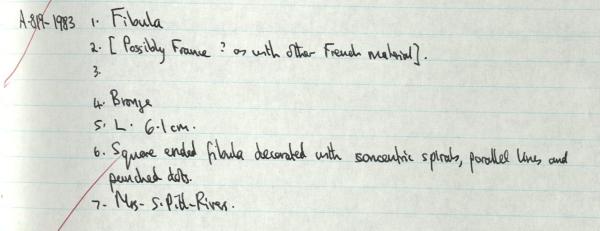 A.819-1983 1. Fibula
2. [Possibly France ? as with other French material].
3.
4. Bronze
5. L. 6.1cm.
6. Square ended fibula decorated with concentric spirals, parallel lines and
punched dots.
7. Mrs. S. Pitt-Rivers.